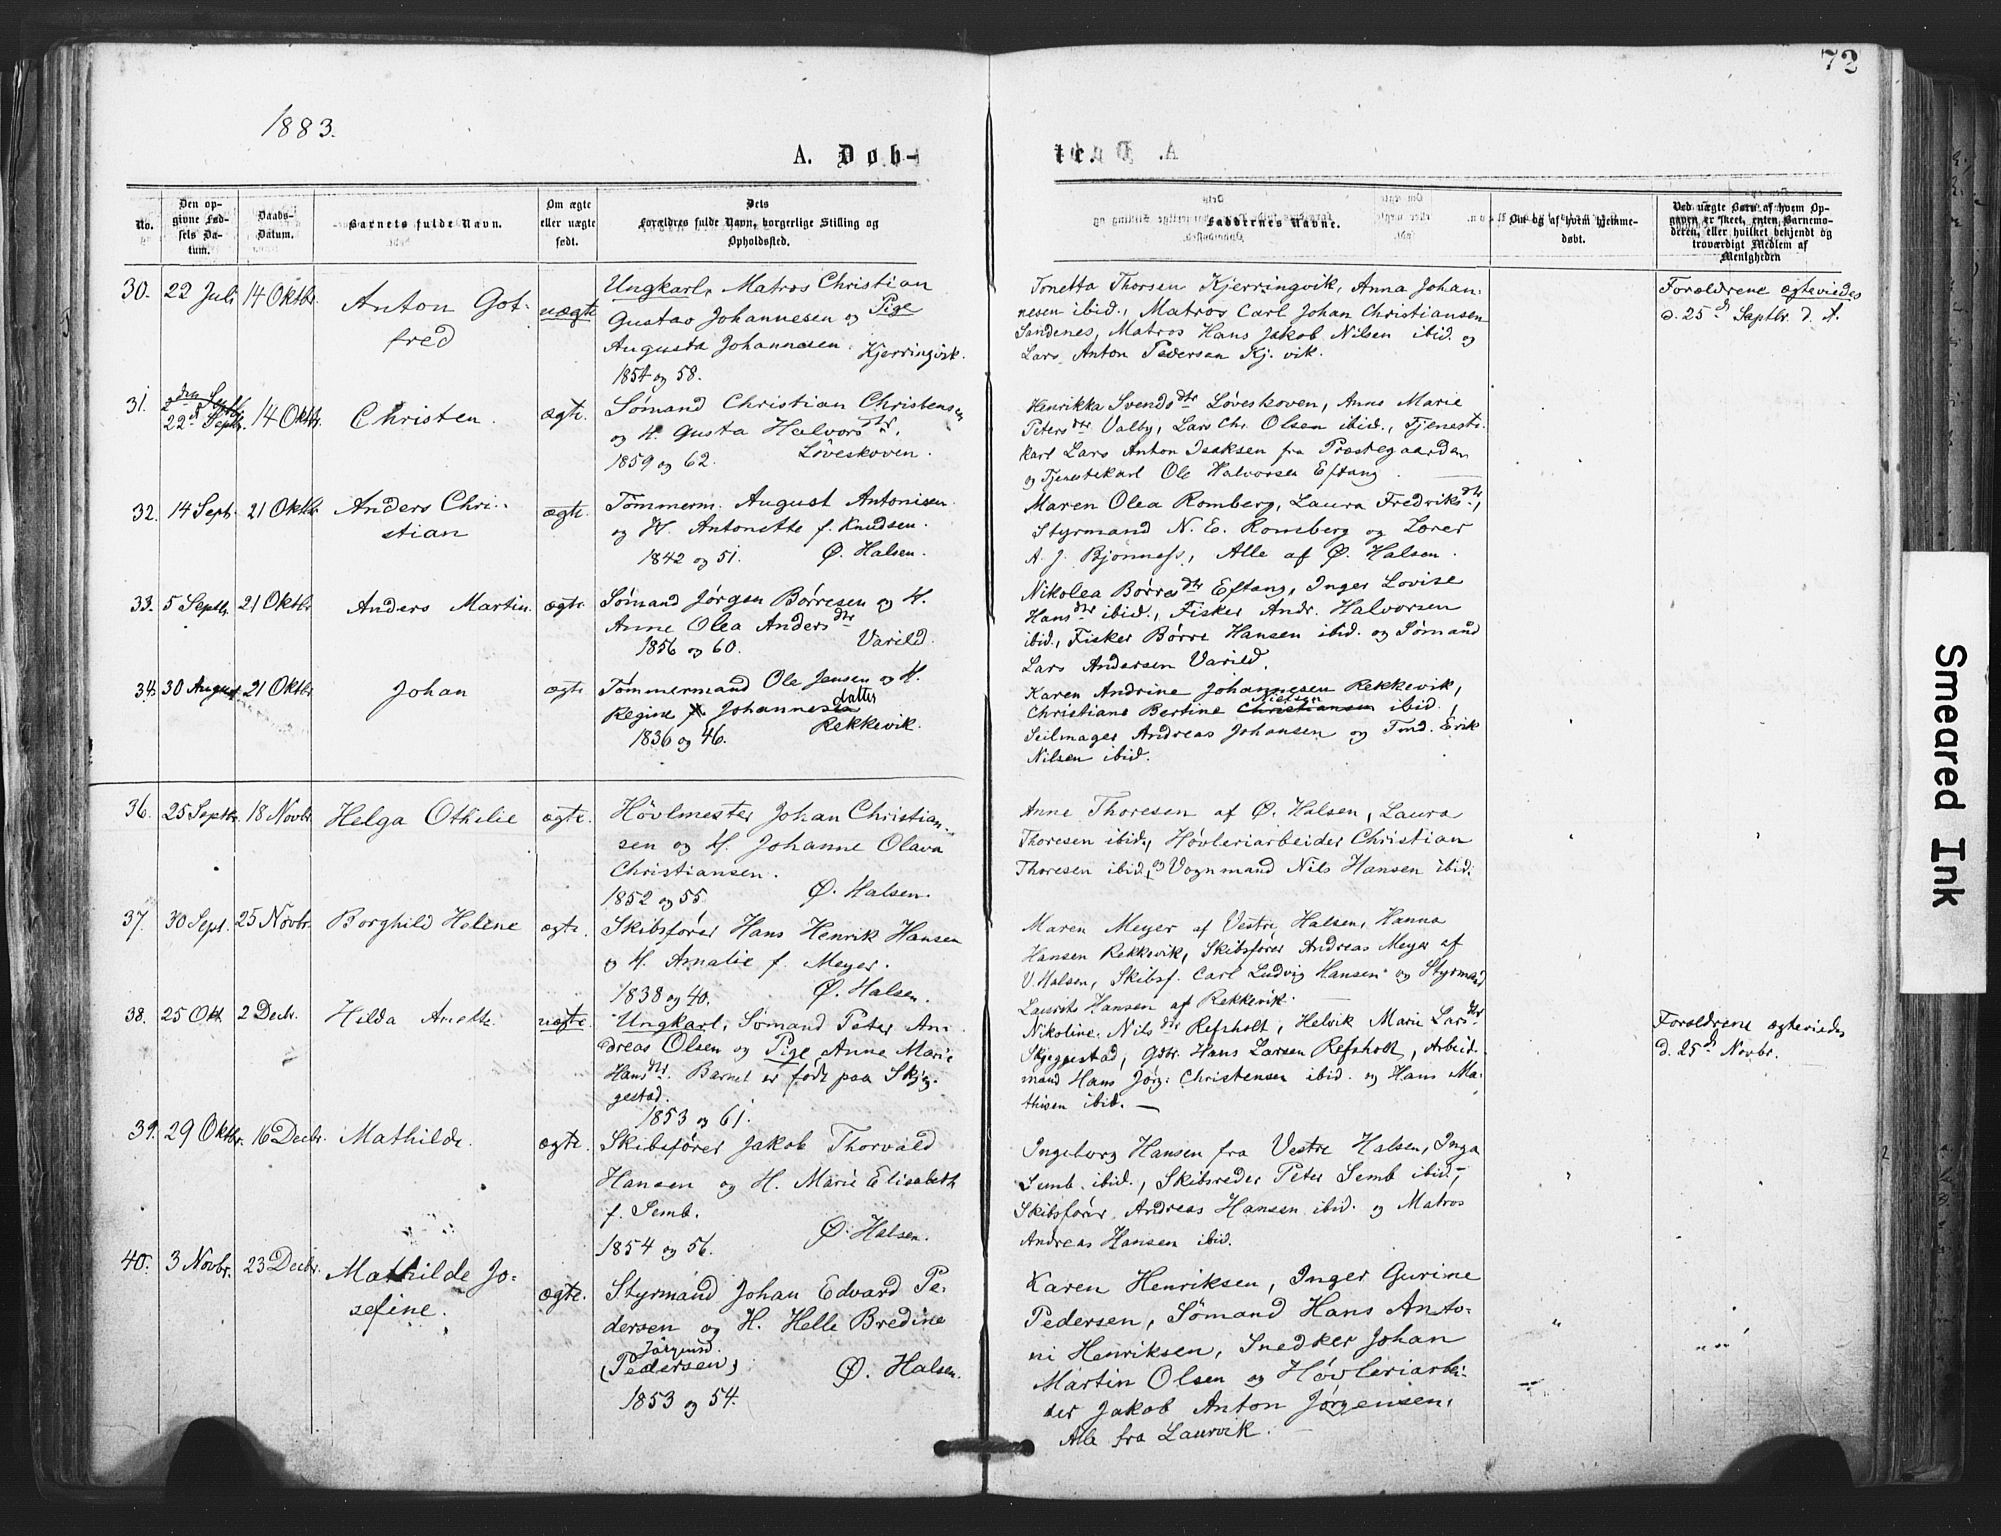 72
1883.
A. Døb-
te.
No.
Den op-
givne Fød-
sels Da-
tum.
Daabs-
Datum.
Barnets fulde Navn.
Om ægte
eller uægte
født.
Dets
Forældres fulde Navn, borgerlige Stilling og
Opholdssted.
Faddernes Navne.
Om og af hvem hjemme-
døbt.
Ved uægte Børn af hvem Op-
gaven er skeet, enten Barnemo-
deren, eller hvilket bekjendt og
troværdigt Medlem af
Menigheden
30. 22 Juli 14 Oktbr. Anton Got-
fred
uægte
Ungkarl, Matros Christian
Gustav Johannesen og Pige
Augusta Johannesen. Kjerringvik.
1854 og 58.
Tonetta Thorsen Kjerringvik, Anna Johan-
nesen ibid., Matros Carl Johan Christiansen
Sandenes, Matros Hans Jakob Nilsen ibid. og
Lars Anton Pedersen Kj. vik.
Forældrene ægteviedes
d. 25d Septbr. d. A.
31. 22d Septbr. 14 Oktbr. Christen. ægte.
Sømand Christian Christensen
og H. Gusta Halvorsdtr.
1859 og 62. Løveskoven.
Henrikka Svendsdtr Løveskoven, Anne Marie
Petersdtr Valby, Lars Chr. Olsen ibid., Tjeneste-
karl Lars Anton Isaksen fra Præstegaarden
og Tjenestekarl Ole Halvorsen Eftang.
32. 14 Sept. 21 Oktbr. Anders Chri-
stian
ægte.
Tømmerm. August Antonisen
og H. Antonette f. Knudsen.
1842 og 51. Ø. Halsen.
Maren Olea Romberg, Laura Fredriksdtr,
Styrmand N. E. Romberg og Lærer
A. J. Bjønness, Alle af Ø. Halsen.
33. 5 Septbr. 21 Oktbr Anders Martin. ægte.
Sømand Jørgen Børresen og H.
Anne Olea Andersdtr
1856 og 60. Varild.
Nikolea Børresdtr Eftang, Inger Lovise
Hansdtr ibid., Fisker Andr. Halvorsen
ibid., Fisker Børre Hansen ibid. og Sømand
Lars Andersen Varild.
34. 30 August 21 Oktbr Johan ægte
Tømmermand Ole Jensen og H.
Regine Johannesdatter
Rekkevik.
1836 og 46.
Karen Andrine Johannesen Rekkevik,
Nielsen
Christiane Bertine Christiansen ibid.,
Seilmager Andreas Johansen og Tmd. Erik
Nilsen ibid.
36. 25 Septbr. 18 Novbr. Helga Othilie ægte.
Høvlmester Johan Christian-
sen og H. Johanne Olava
Christiansen.
1852 og 55. Ø. Halsen.
Anne Thoresen af Ø. Halsen, Laura
Thoresen ibid., Høvleriarbeider Christian
Thoresen ibid., og Vognmand Nils Hansen ibid.
37. 30 Sept. 25 Novbr. Borghild Helene ægte.
Skibsfører Hans Henrik Hansen
og H. Amalie f. Meyer.
1838 og 40. Ø. Halsen.
Maren Meyer af Vestre Halsen, Hanna
Hansen Rekkevik, Skibsfører Andreas Meyer af
V. Halsen, Skibsf. Carl Ludvig Hansen og Styrmand
Laurits Hansen af Rekkevik.
38. 25 Okt. 2 Decbr. Hilda Anette uægte.
Ungkarl, Sømand Peter An-
dreas Olsen og Pige Anne Marie
Hansdtr. Barnet er født paa Skjeg-
gestad.
1853 og 61.
Nikoline Nilsdtr Refsholt, Helvik Marie Larsdtr
Skjeggestad, Gdbr. Hans Larsen Refsholt, Arbeid-
mand Hans Jørg: Christensen ibid. og Hans Ma-
thisen ibid. —
Forældrene ægteviedes
d. 25d Novbr.
39. 29 Oktbr. 16 Decbr. Mathilde. ægte.
Skibsfører Jakob Thorvald
Hansen og H. Marie Elisabeth
f. Semb.
Ø. Halsen.
1854 og 56.
Ingeborg Hansen fra Vestre Halsen, Inga
Semb ibid., Skibsreder Peter Semb ibid.,
Skibsfører Andreas Hansen ibid. og Matros
Andreas Hansen ibid.
40. 3 Novbr. 23 Decbr. Mathilde Jo-
sefine.
ægte.
Styrmand Johan Edvard Pe-
dersen og H. Helle Bredine
Jørgensd.
(Pedersen) Ø. Halsen.
1853 og 54.
Karen Henriksen, Inger Gurine
Pedersen, Sømand Hans Anto-
ni Henriksen, Snedker Johan
Martin Olsen og Høvleriarbei-
der Jakob Anton Jørgensen,
Alle fra Laurvik.
Smeared Ink